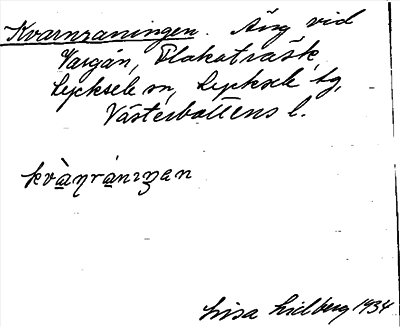 Kvarnraningen. Äng vid
Vargån, Flakaträsk
Lycksele sn, Lycksele tg,
Västerbottens l.
kvàṇránıŋan
Lisa Lidberg 1934